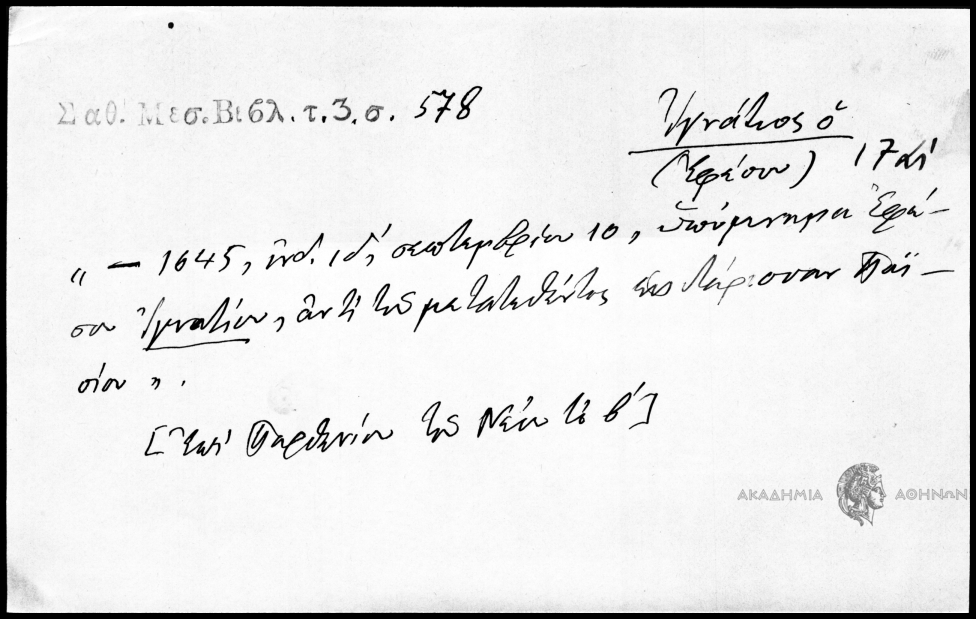 Σαθ. Μεσ. Βιβλ. τ. 3. σ. 578
Ἰγνάτιος ὁ
(Ἐφέσου) 17
" — 1645, ἰνδ. ιδ', σεπτεμβρίου 10, ὑπόμνημα Ἐφέ-
σου Ἰγνατίου, ἀντὶ τοῦ μετατεθέντος εἰς Λάρισσαν Παϊ-
σίου ".
[Ἐπὶ Παρθενίου τοῦ Νέου τὸ β']
ΑΚΑΔΗΜΙΑ ΑΘΗΝΩΝ